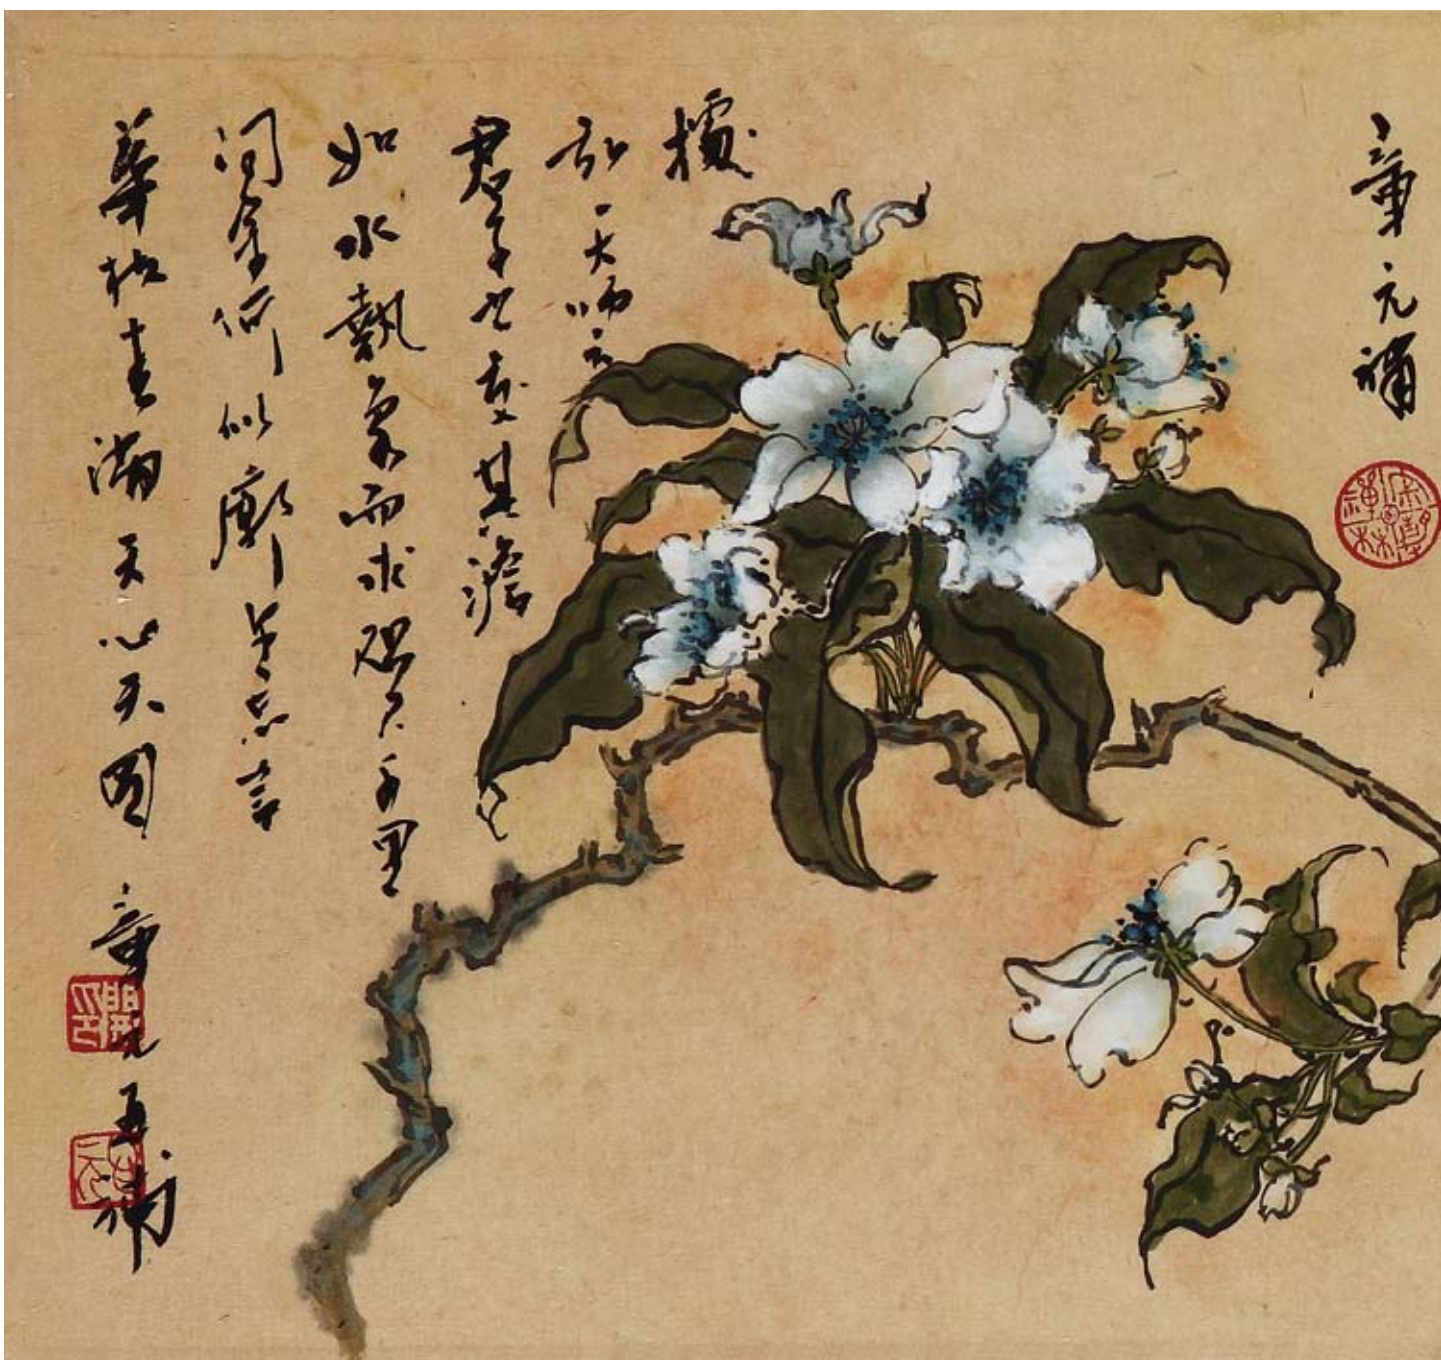 章元補
據
弘一大師云
君子之交其澹
如水執象而求咫尺千里
問余何似廓尔忘言
華枝春滿天心月圓 章元